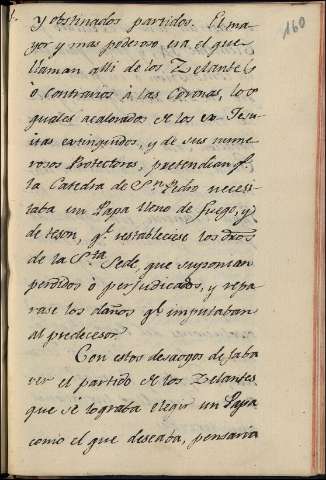 160
y obstinados partidos. El ma-
yor y mas poderoso era el que
llaman alli de los Zelantes
ò contrarios à las Coronas, los
quales acalorados de los ex Jesu-
itas extinguidos, y de sus nume-
rosos Protectores, pretendian qe.
la Catedra de Sn. Pedro necesi-
taba un Papa lleno de fuego, y
de teson, qe. restableciese los dros
de la Sta. Sede, que suponian
perdidos ò perjudicados, y repa-
rase los daños qe imputaban
al predecesor.
Con estos desaogos deseaba
ver el partido de los Zelantes
que se lograba elegir un Papa
como el que deseaba, pensaria